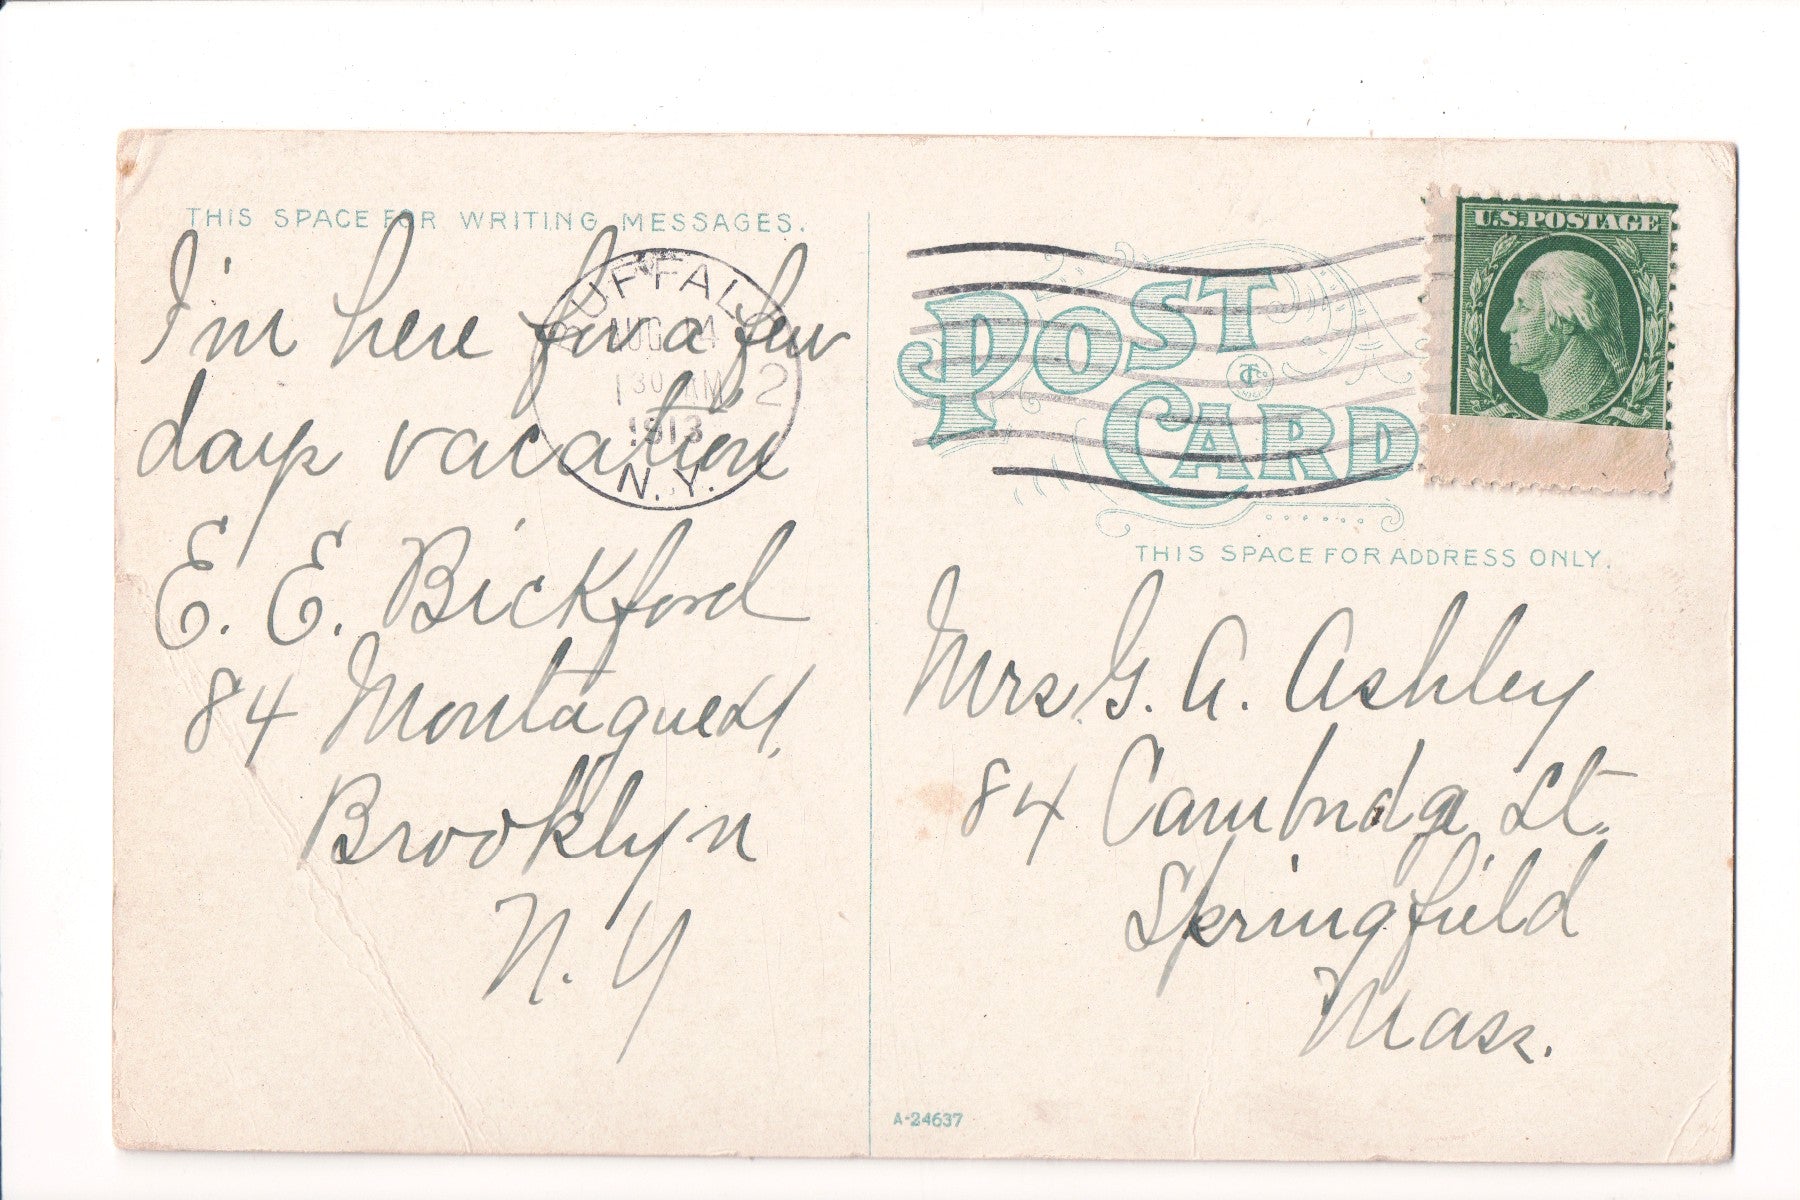 THIS SPACE FOR WRITING MESSAGES.
I'm here for a few
days vacation
E. E. Bickford
84 Montague St.
Brooklyn
N. Y
BUFFALO
AUG 14
1 30 AM
1913
N.Y.
2
POST
CARD
U.S. POSTAGE
THIS SPACE FOR ADDRESS ONLY.
Mrs. G. A. Ashley
84 Cambridge St.
Springfield
Mass.
A-24637